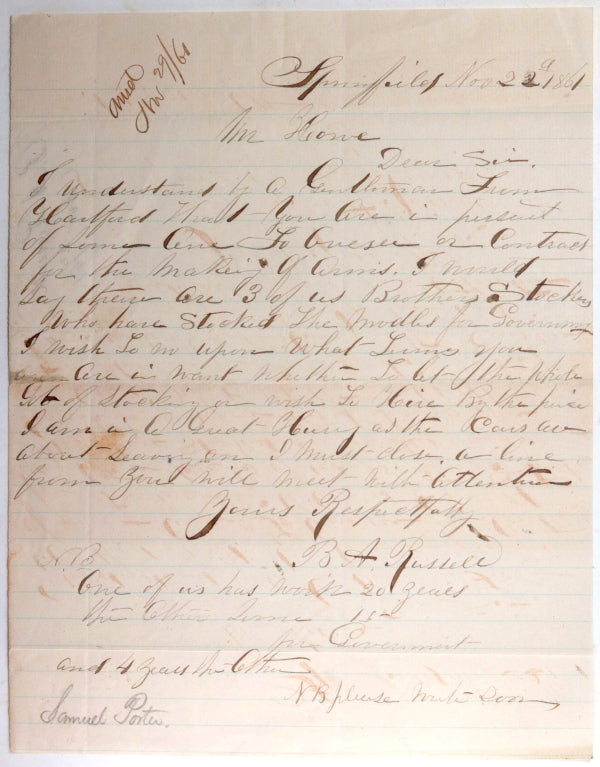 ansd
Nov 29/61
Springfield Nov 22d 1861
Mr Howe
Dear Sir.
I understand by A Gentleman From
Hartford that You Are in pursuit
of Some One To Oversee or Contract
for the Making of Arms. I would
Say there Are 3 of us Brothers Stockers
Who have Stocked The Modles for Government
I wish To no upon What Terms you
Are in want whether To let the whole
of Stocking or wish To Hire By the piece
I am in A Great Hurry as the Cars are
About Leaving an I must close. a line
from you will meet with Attention
Yours Respectfully
B A Russell
N.B
One of us has work 20 years
the Other Some 15
for Government
and 4 years the Other
N B please write Soon
Samuel Porter.